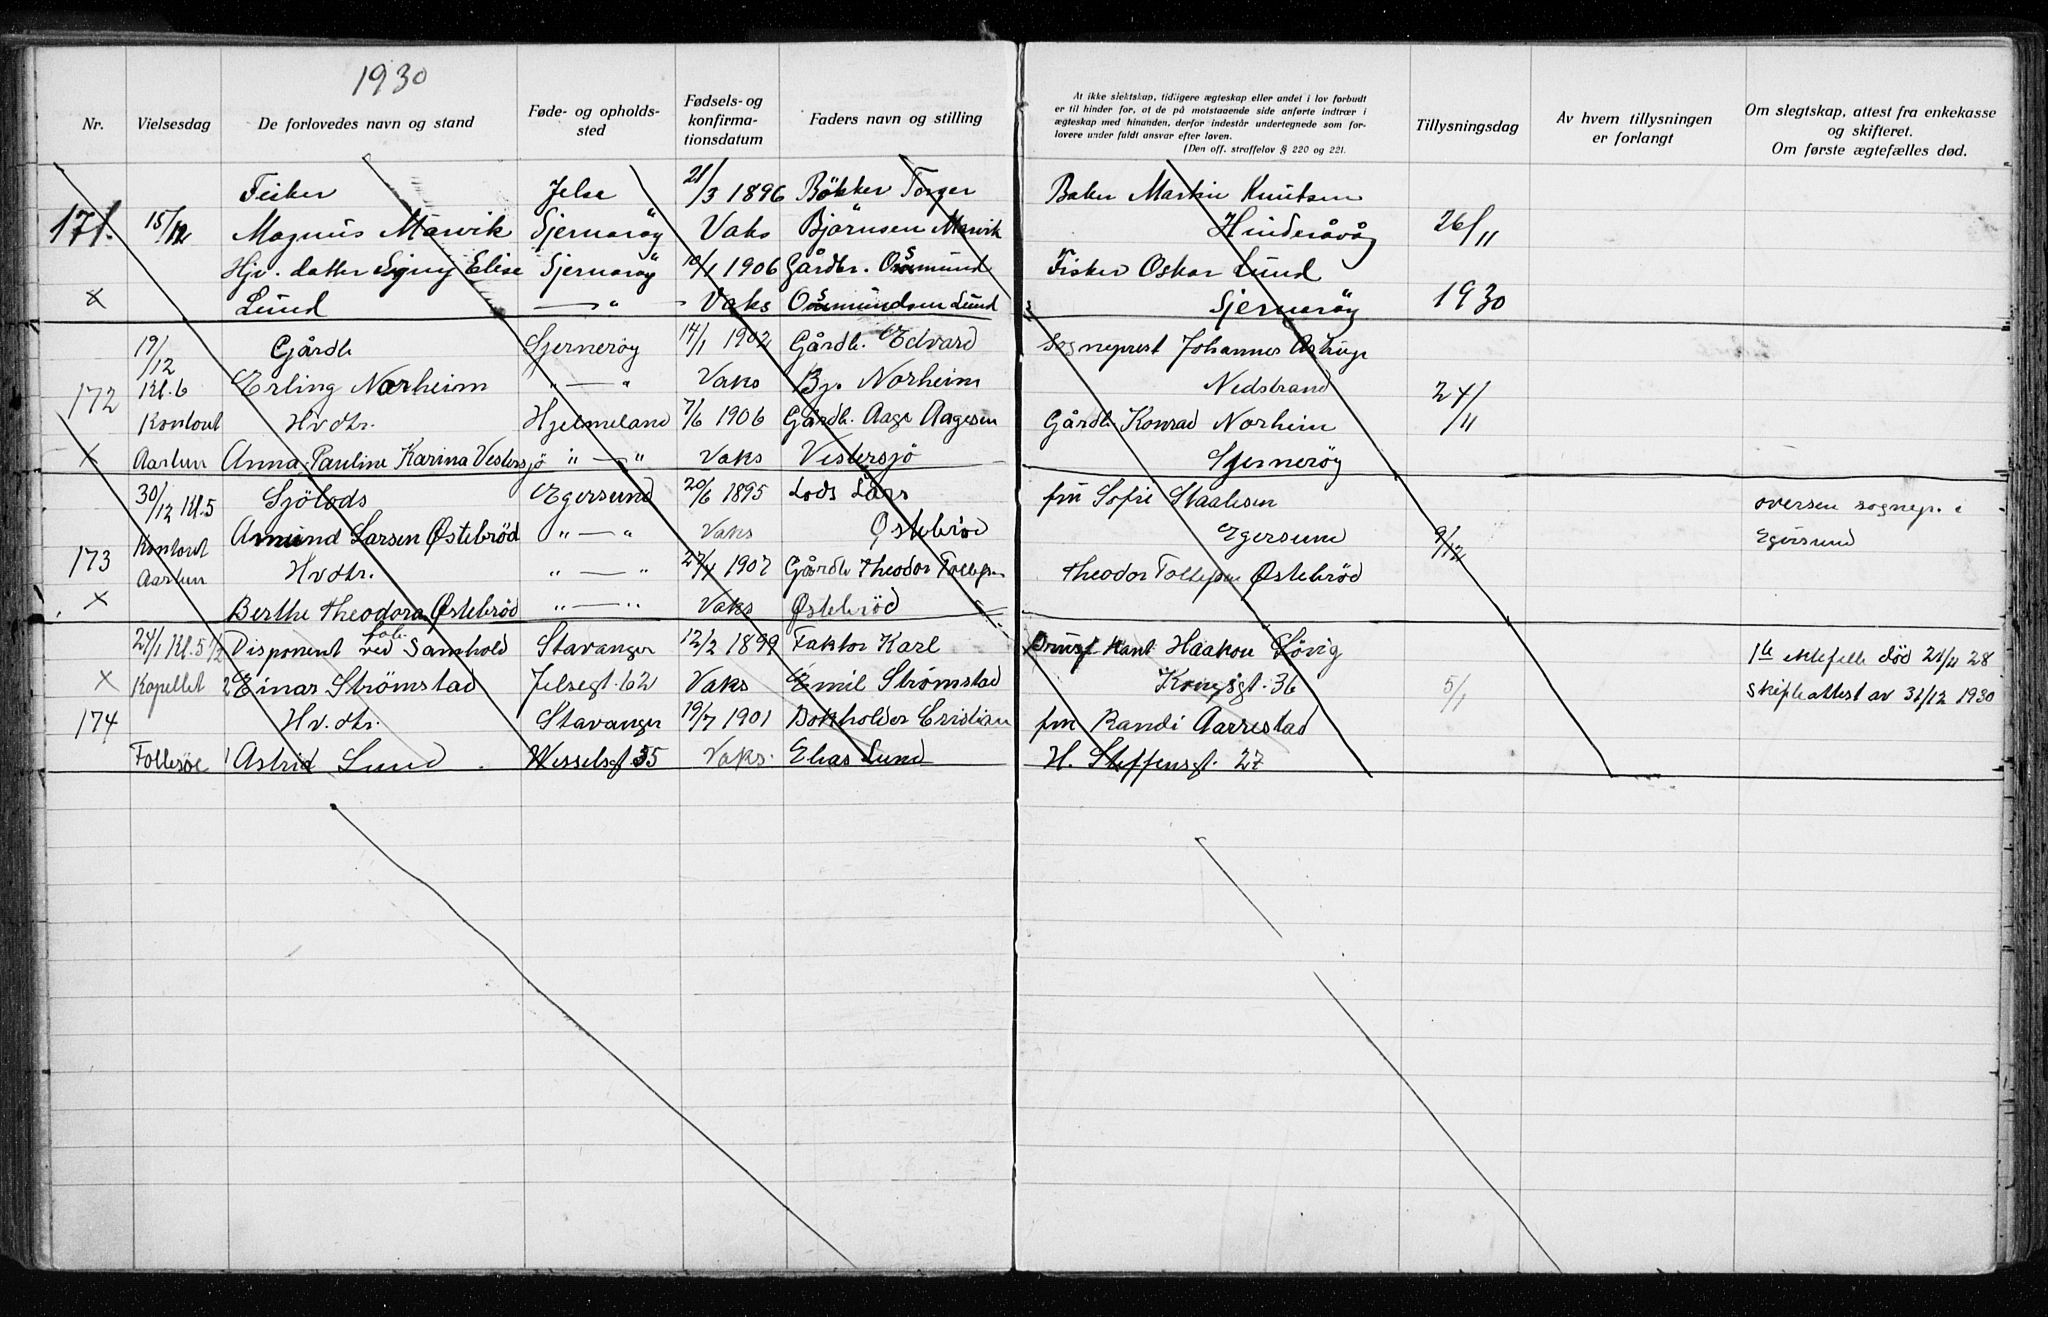 1930
Nr. Vielsesdag De forlovedes navn og stand Føde- og opholds-sted Fødsels- og konfirma-tionsdatum Faders navn og stilling
At ikke slektskap, tidligere ægteskap eller andet i lov forbudt
er til hinder for, at de på motstaaende side anførte indtrær i
ægteskap med hinanden, derfor indestår undertegnede som for-
lovere under fuldt ansvar efter loven.
(Den off. straffelov § 220 og 221.
Tillysningsdag Av hvem tillysningen er forlangt Om slegtskap, attest fra enkekasse og skifteret. Om første ægtefælles død.
Fisker Jelse 21/3 1896 Bökker Torger Baker Martin Knutsen
171. 15/12 Magnus Marvik Sjernaröy Vaks Björnsen Marvik Hinderåvåg 26/11
Hjv. datter Signy Elise Sjernaröy 10/1 1906 Gårdbr. Osmund Fisker Oskar Lund
x Lund — " — Vaks Osmundsen Lund Sjernaröy 1930
19/12 Gårdb Sjernerøy 14/1 1902 Gårdb. Edvard Sogneprest Johannes Astrup
172 Kl. 6 Erling Norheim " — " Vaks Bj. Norheim Nedstrand 24/11
Kontoret Hv dtr. Hjelmeland 7/6 1906 Gårdb. Aage Aagesen Gårdb Konrad Norheim
x Aarlun Anna Pauline Karina Vestersjö " — " Vaks Vestersjö Sjernerøy
30/12 Kl. 5 Sjölods Egersund 20/6 1895 Lods Lars frn Sofie Staalesen oversen sognepr. i
Kontoret Amund Larsen Østebrød " — " Vaks Østebrød Egersund 9/12 Egersund
173 Aarlun Hv dtr. " — " 1907 Gårdb Theodor Tollefsen Theodor Tollefsen Østebrød
x Berthe Theodora Østebrød " — " Vaks Østebrød
24/1 Kl. 5 1/2 Disponent ved Samhold Stavanger 12/2 1899 Faktor Karl Haakon Løvig 1te ektefelle død 28
x Kapellet 2 Einar Strømstad Jelsegt. 62 Vaks Emil Strømstad Kongsgt. 36 5/1 Skifteattest av 31/12 1930
174 Hv. dtr. Stavanger 19/7 1901 Bokholder Cristian frn Randi Aarrestad
Follesøe 1 Astrid Lund Wesselsgt 35 Vaks. Elias Lund H. Steffensgt. 27